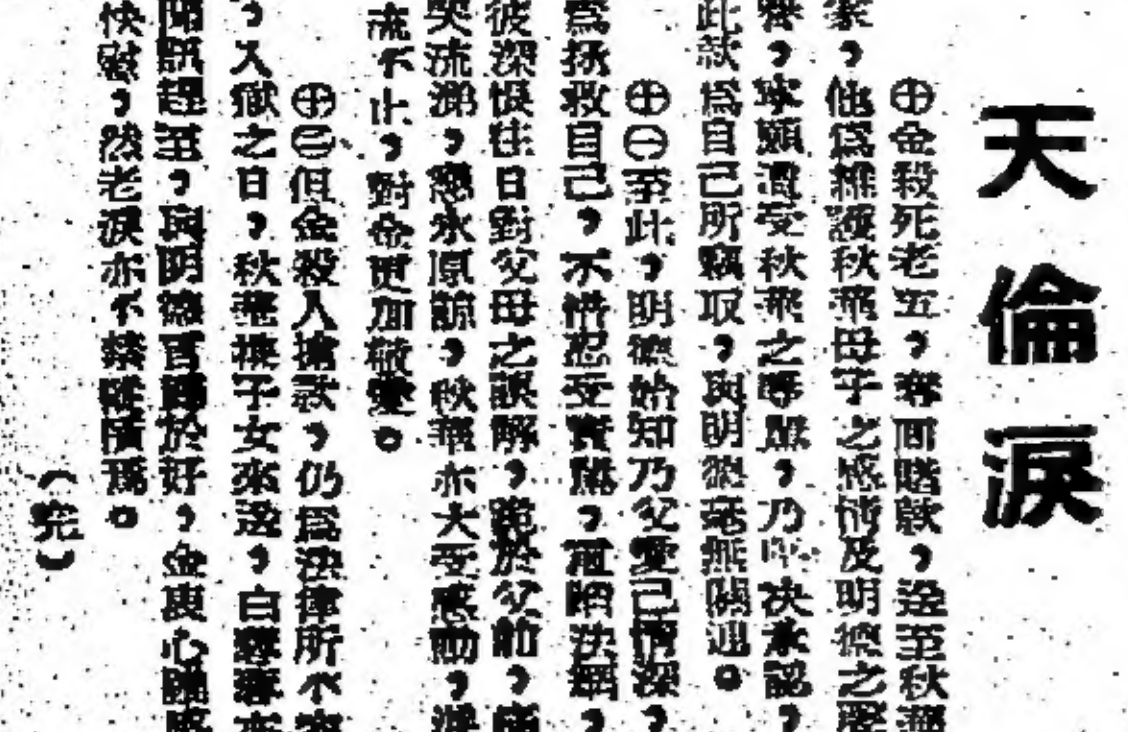 天倫淚
㊉金殺死老五，奪回賭款，逃至秋
家，他為維護秋華母子之感情及明德之
譽，寧願遭受秋華之辱罵，乃決承認，
此款為自己所竊取，與明德毫無關連。
㊉㊀至此，明德始知乃父愛己情深，
為拯救自己，不惜忍受責罵，冒陷法網，
彼深恨往日對父母之誤解，跪於父前，痛
哭流涕，懇求原諒，秋華亦大受感動，淚
流不止，對金更加敬愛。
㊉㊁但金殺人搶款，仍為法律所不容
，入獄之日，秋華攜子女來送，白
聞訊趕至，與明德言歸於好，金衷心
快慰，然老淚亦不禁
（完）